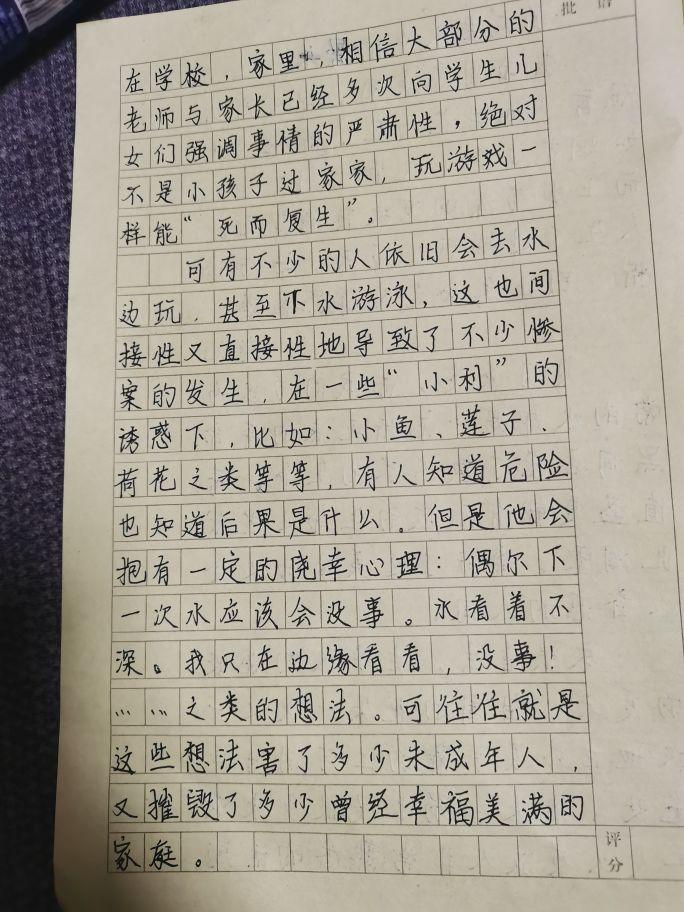 批语
在学校，家里，相信大部分的
老师与家长已经多次向学生儿
女们强调事情的严肃性，绝对
不是小孩子过家家，玩游戏一
样能“死而复生”。
可有不少的人依旧会去水
边玩，甚至下水游泳，这也间
接性又直接性地导致了不少惨
案的发生，在一些“小利”的
诱惑下，比如：小鱼、莲子、
荷花之类等等，有人知道危险
也知道后果是什么。但是他会
抱有一定的侥幸心理：偶尔下
一次水应该会没事。水看着不
深。我只在边缘看看，没事！
……之类的想法。可往往就是
这些想法害了多少未成年人，
又摧毁了多少曾经幸福美满的
家庭。
评分